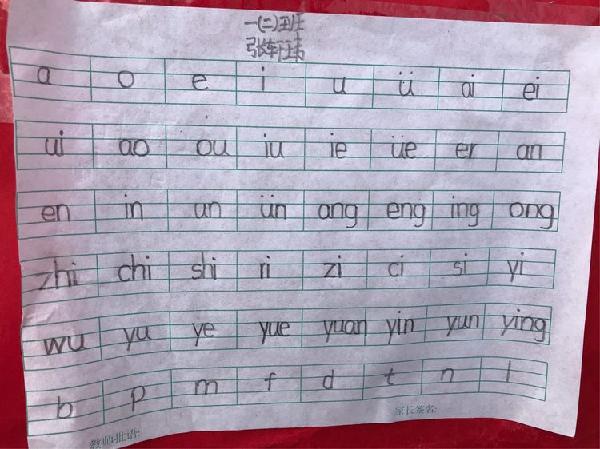 一(二)班
张轩玮
a o e i u ü ai ei
ui ao ou iu ie üe er an
en in un ün ang eng ing ong
zhi chi shi ri zi ci si yi
wu yu ye yue yuan yin yun ying
b p m f d t n l
教师批语: 家长签名: